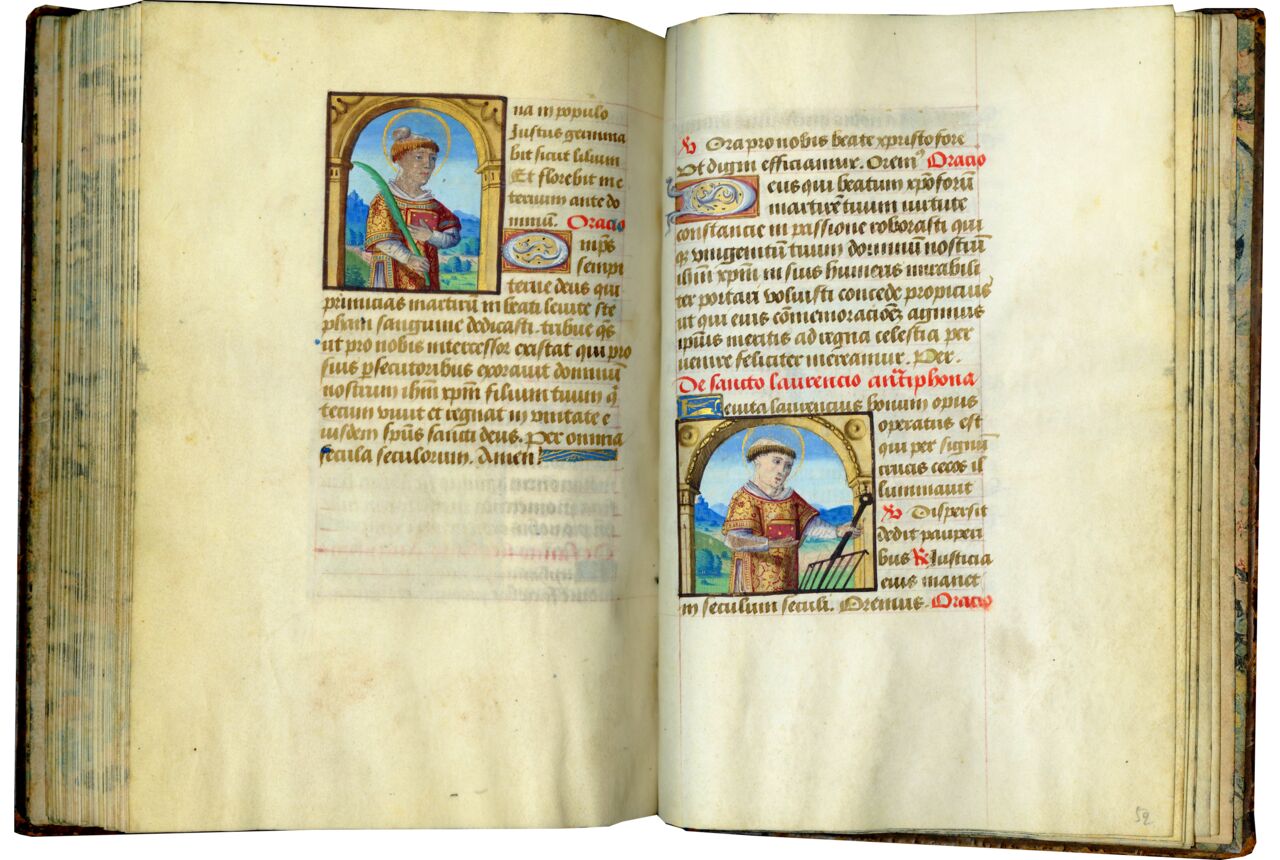 na in populo
Justus germina
bit sicut lilium
Et florebit in e
ternum ante do
minum. Oracio
mps
sempi
terne deus qui
primicias martirum in beati levite ste
phani sanguine dedicasti. tribue qs
ut pro nobis intercessor existat qui pro
suis psecutoribus exoravit dominum
nostrum ihm xpm filium tuum q
tecum vivit et regnat in unitate e
iusdem spus sancti deus. Per omnia
secula seculorum. Amen
Ora pro nobis beate xpristofore
Ut digni efficiamur. Orem9 Oracio
eus qui beatum xpoforum
martirem tuum virtute
constancie in passione roborasti qui
q unigenitum tuum dominum nostrum
ihm xpm in suis humeris mirabili
ter portari voluisti concede propicius
ut qui eius comemoracione agimus
ipsius meritis ad regna celestia per
venire feliciter mereamur. Per.
De sancto laurencio antiphona
Levita laurencius bonum opus
operatus est
qui per signum
crucis cecos il
luminavit
Dispersit
dedit pauperi
bus Justicia
eius manet
in seculum seculi. Oremus. Oracio
52